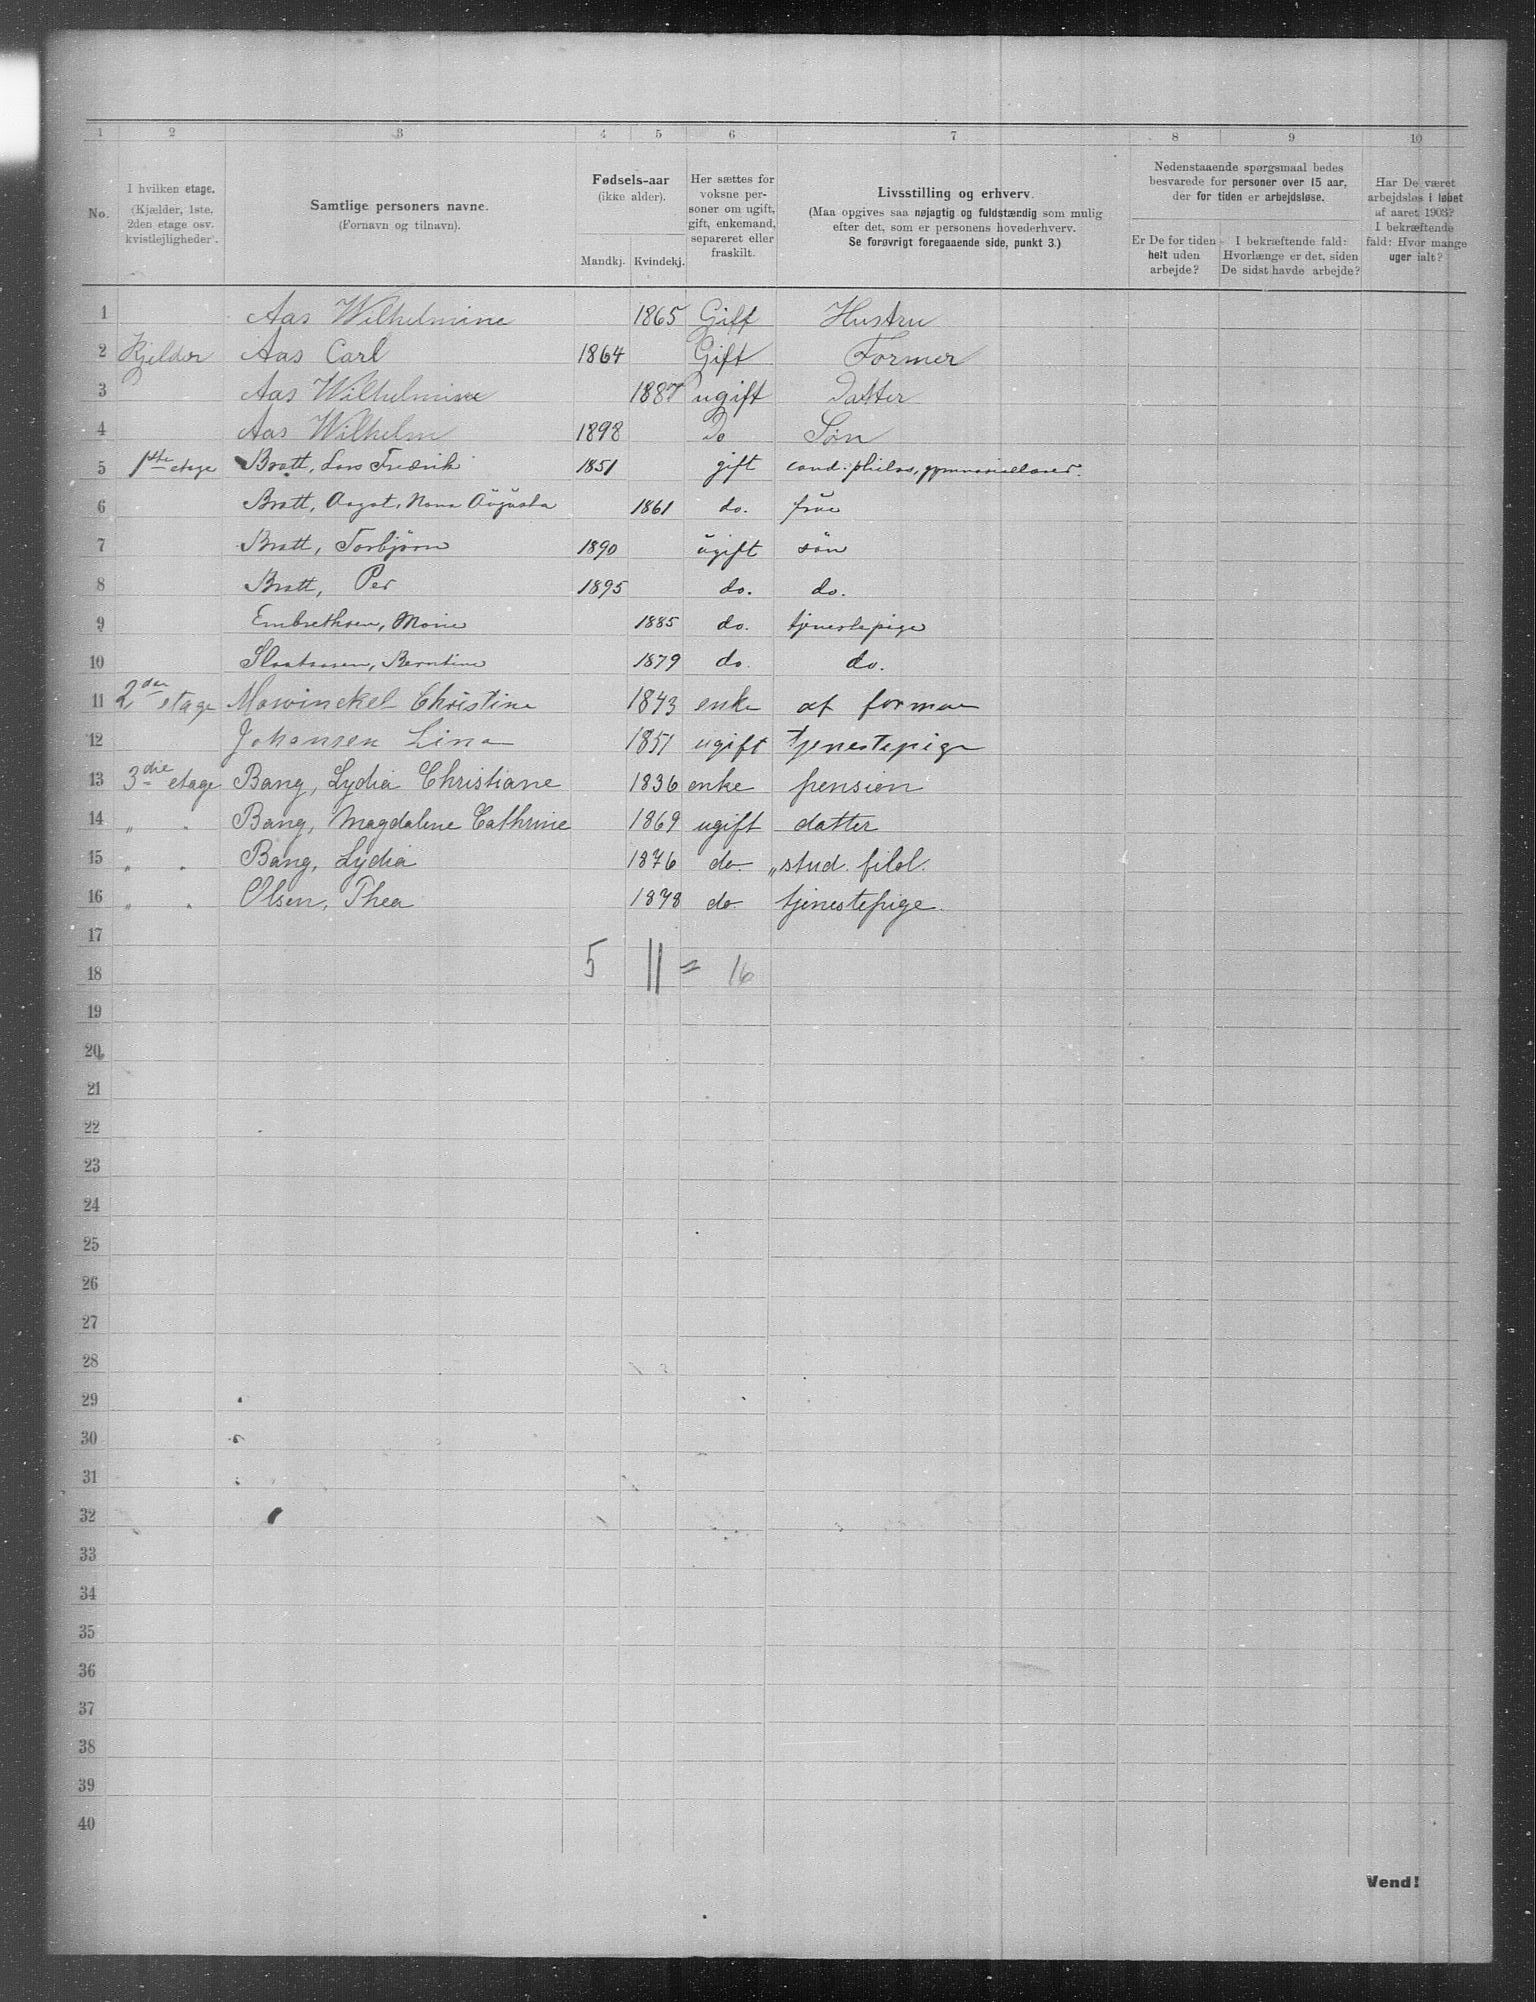 1 2 3 4 5 6 7 8 9 10
No. I hvilken etage. (Kjælder, 1ste, 2den etage osv. kvistlejligheder). Samtlige personers navne. (Fornavn og tilnavn). Fødsels-aar (ikke alder). Mandkj. Kvindekj. Her sættes for voksne personer om ugift, gift, enkemand, separeret eller fraskilt. Livsstilling og erhverv. (Maa opgives saa nøjagtig og fuldstændig som mulig efter det, som er personens hovederhverv. Se forøvrigt foregaaende side, punkt 3.) Nedenstaaende spørgsmaal bedes besvarede for personer over 15 aar, der for tiden er arbejdsløse. Er De for tiden helt uden arbejde? I bekræftende fald: Hvorlænge er det, siden De sidst havde arbejde? Har De været arbejdsløs i løbet af aaret 1903? I bekræftende fald: Hvor mange uger ialt?
1 Aas Wilhelmine 1865 Gift Hustru
2 Kjelder Aas Carl 1864 Gift Former
3 Aas Wilhelmine 1887 ugift Datter
4 Aas Wilhelm 1898 Do Søn
5 1ste etage Bratt, Lars Fredrik 1851 gift cand. philos, gymnasiellærer.
6 Bratt, Nanna Augusta 1861 do. frue
7 Bratt, Torbjørn 1890 ugift søn
8 Bratt, Per 1895 do. do.
9 Embrethsen, Marie 1885 do. tjenestepige
10 Berntine 1879 do. do.
11 2den etage Mowinckel Christine 1843 enke af formue
12 Johansen Lina 1851 ugift tjenestepige
13 3die etage Bang, Lydia Christiane 1836 enke pension
14 " " Bang, Magdalene Cathrine 1869 ugift datter
15 " " Bang, Lydia 1876 do. " stud. filol.
16 " " Olsen, Thea 1878 do. tjenestepige.
17
18 5 11 = 16
19
20
21
22
23
24
25
26
27
28
29
30
31
32
33
34
35
36
37
38
39
40
Vend!